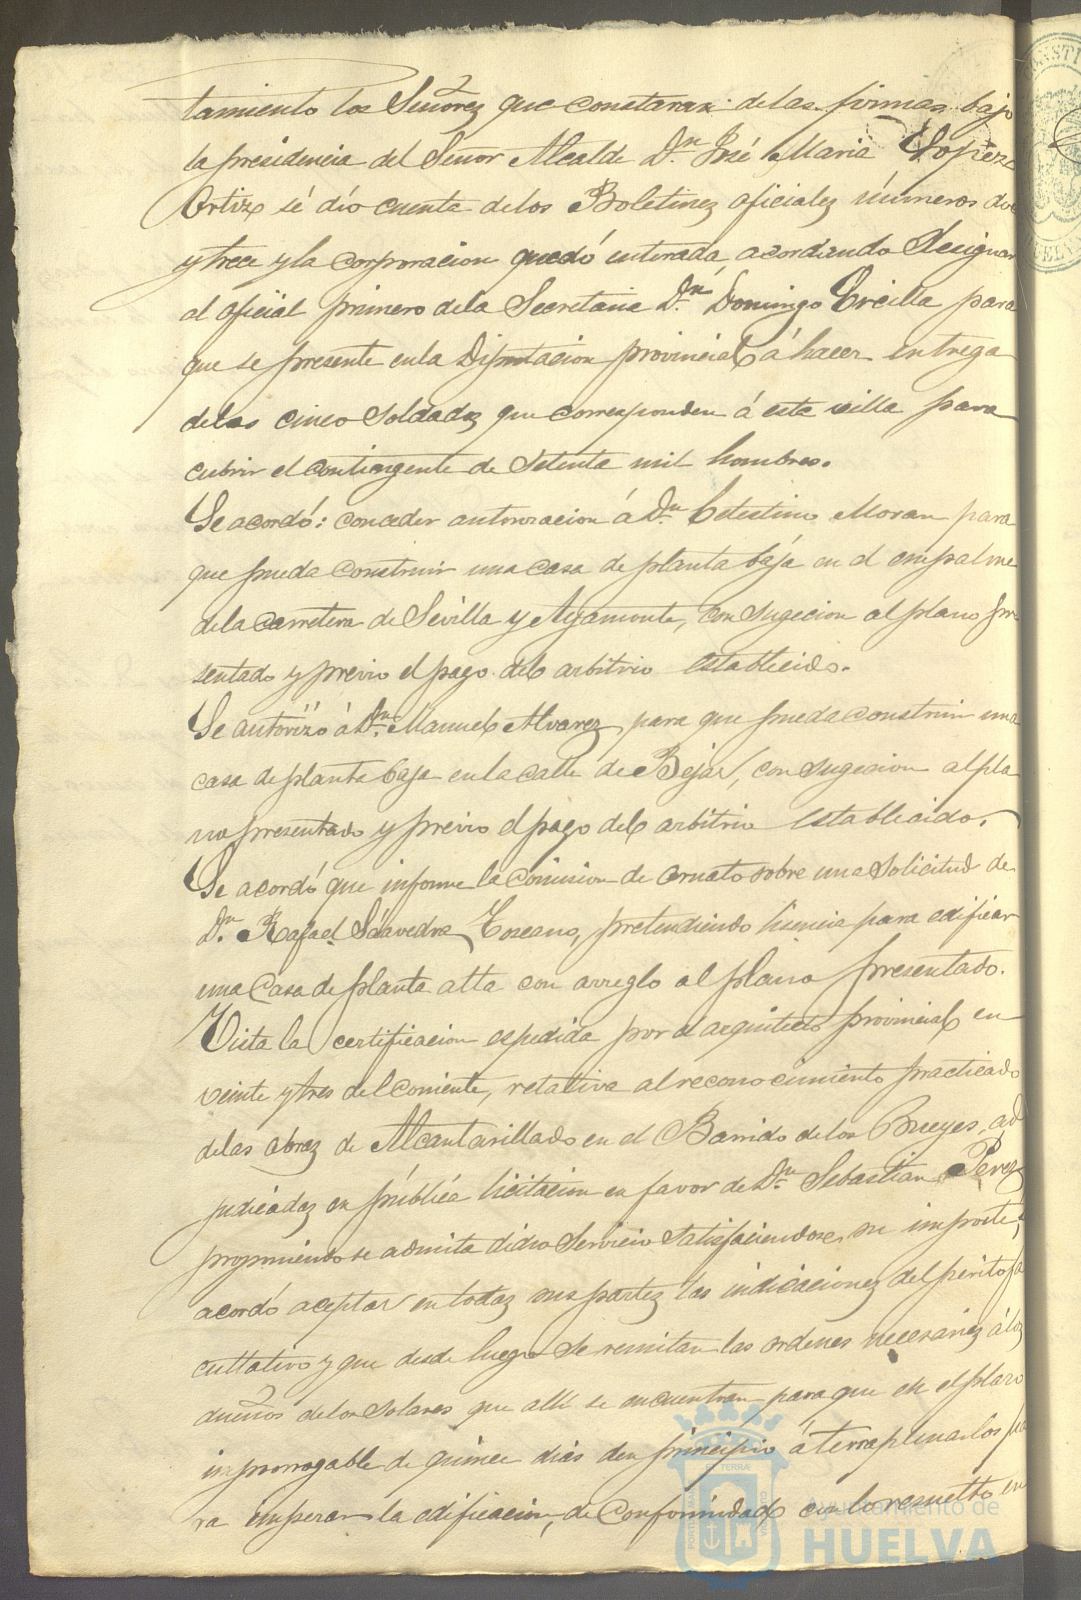 tamiento los Señores que constaran de las firmas bajo
la presidencia del Señor Alcalde Dn. José Maria Lopez
Ortiz se dió cuenta de los Boletines oficiales números doce
y trece y la corporacion quedó enterada, acordando designar
al oficial primero dela Secretaria Dn. Domingo Ercilla para
que se presente en la Diputacion provincial á hacer entrega
de los cinco soldados que corresponden á esta villa para
cubrir el contingente de setenta mil hombres.
Se acordó: conceder autorizacion á Dn. Celestino Moran para
que pueda construir una casa de planta baja en el empalme
de la carretera de Sevilla y Ayamonte, con sugecion al plano pre
sentado y previo el pago del arbitrio establecido.
Se autorizó á Dn. Manuel Alvarez para que pueda construir una
casa de planta baja en la calle de Bejar, con sugecion al pla
no presentado y previo el pago del arbitrio establecido.
Se acordó que informe la Comision de ornato sobre una solicitud de
Dn. Rafael Saavedra Toscano, pretendiendo licencia para edificar
una Casa de planta alta con arreglo al plano presentado.
Vista la certificacion espedida por el arquitecto provincial en
veinte y tres del corriente, relativa al reconocimiento practicado
de las obras de Alcantarillado en el Barrido de los Bueyes, ad
judicadas en pública licitacion en favor de Dn. Sebastian Perez
proponiendo se admita dicho servicio satisfaciendose su importe,
acordó aceptar en todas sus partes las indicaciones del perito fa
cultativo y que desde luego se remitan las ordenes necesarias á los
dueños de los solares que alli se encuentran para que en el plazo
improrrogable de quince dias den principio á terraplenarlos pa
ra empezar la edificacion, de Conformidad con lo resuelto en
Ayuntamiento de
HUELVA